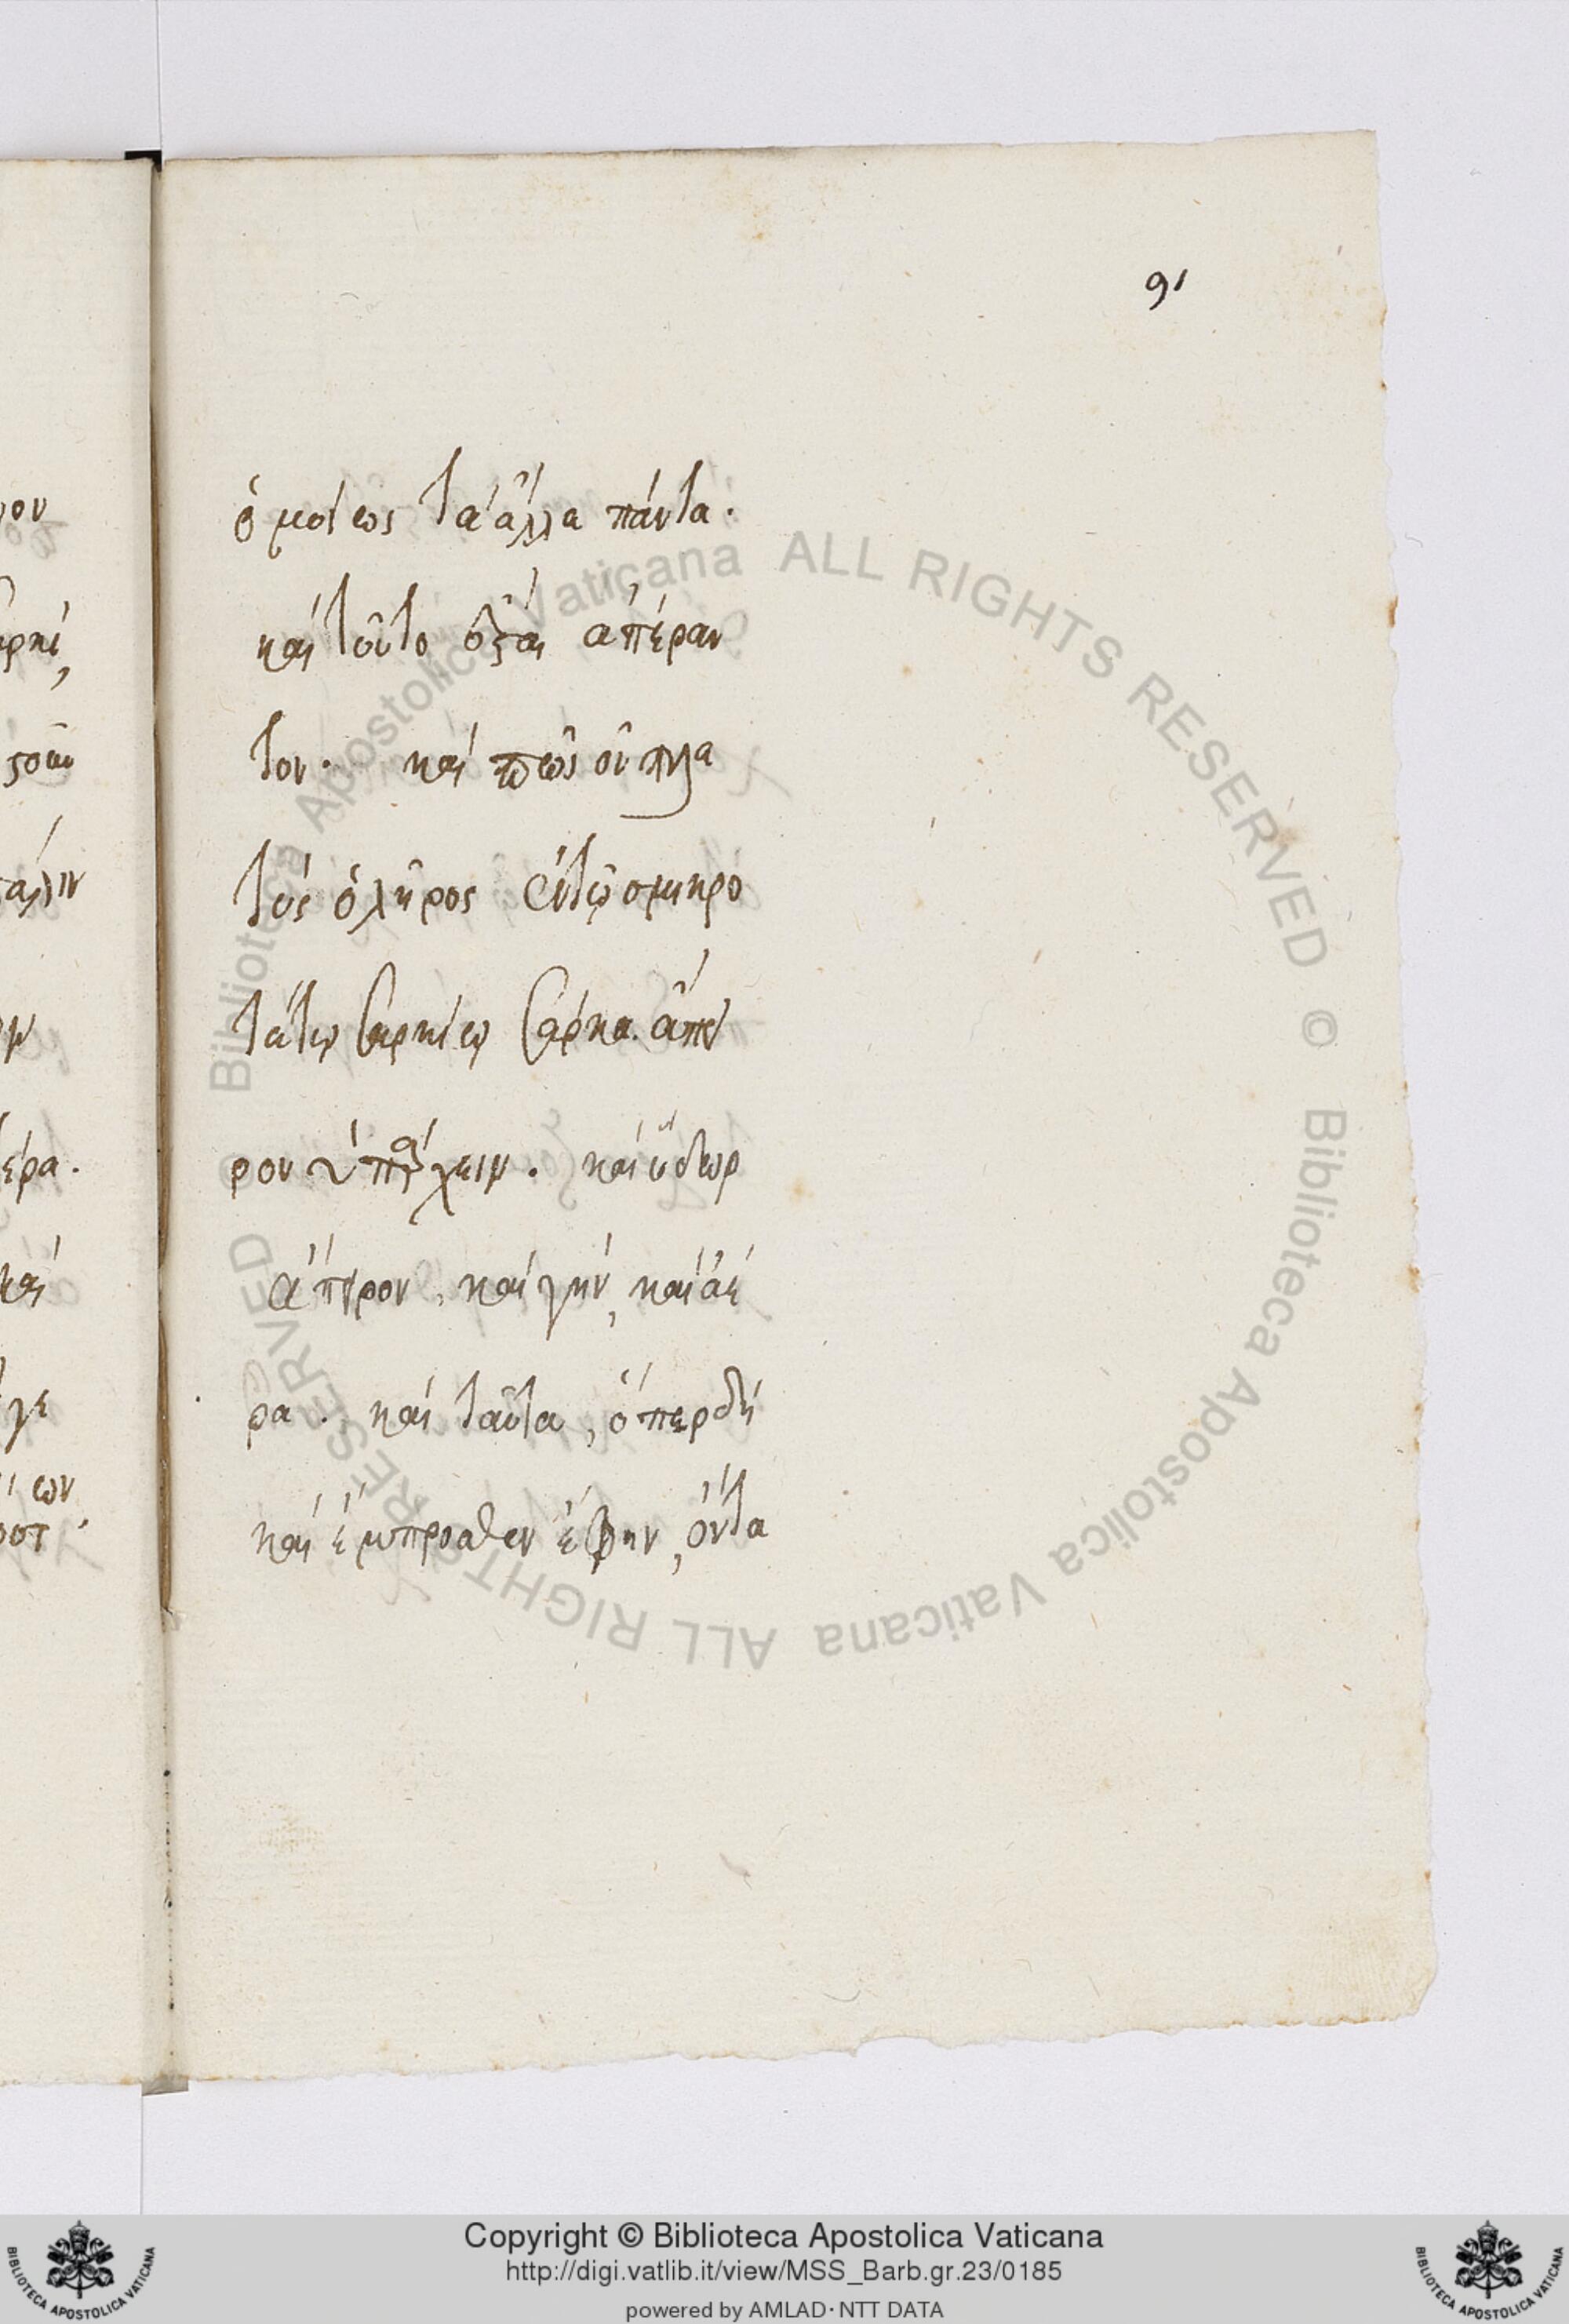 91
ὁμοίως τὰ ἄλλα πάντα.
καὶ τοῦτο ἔσται ἀπέραν
τον. καὶ πῶς οὐ πλα
τὺς ὁ λῆρος ἐν τῷ σμικρο
τάτῳ σαρκίῳ σάρκα ἄπει
ρον ὑπάρχειν. καὶ ὕδωρ
ἄπειρον, καὶ γῆν, καὶ ἀέ
ρα. καὶ ταῦτα, ὅπερ δὴ
καὶ ἔμπροσθεν ἔφην, ὄντα
ρκί,
πάλιν
έρα.
καὶ
γε
Copyright © Biblioteca Apostolica Vaticana
http://digi.vatlib.it/view/MSS_Barb.gr.23/0185
powered by AMLAD · NTT DATA
© Biblioteca Apostolica Vaticana ALL RIGHTS RESERVED © Biblioteca Apostolica Vaticana ALL RIGHTS RESERVED
BIBLIOTECA APOSTOLICA VATICANA
BIBLIOTECA APOSTOLICA VATICANA